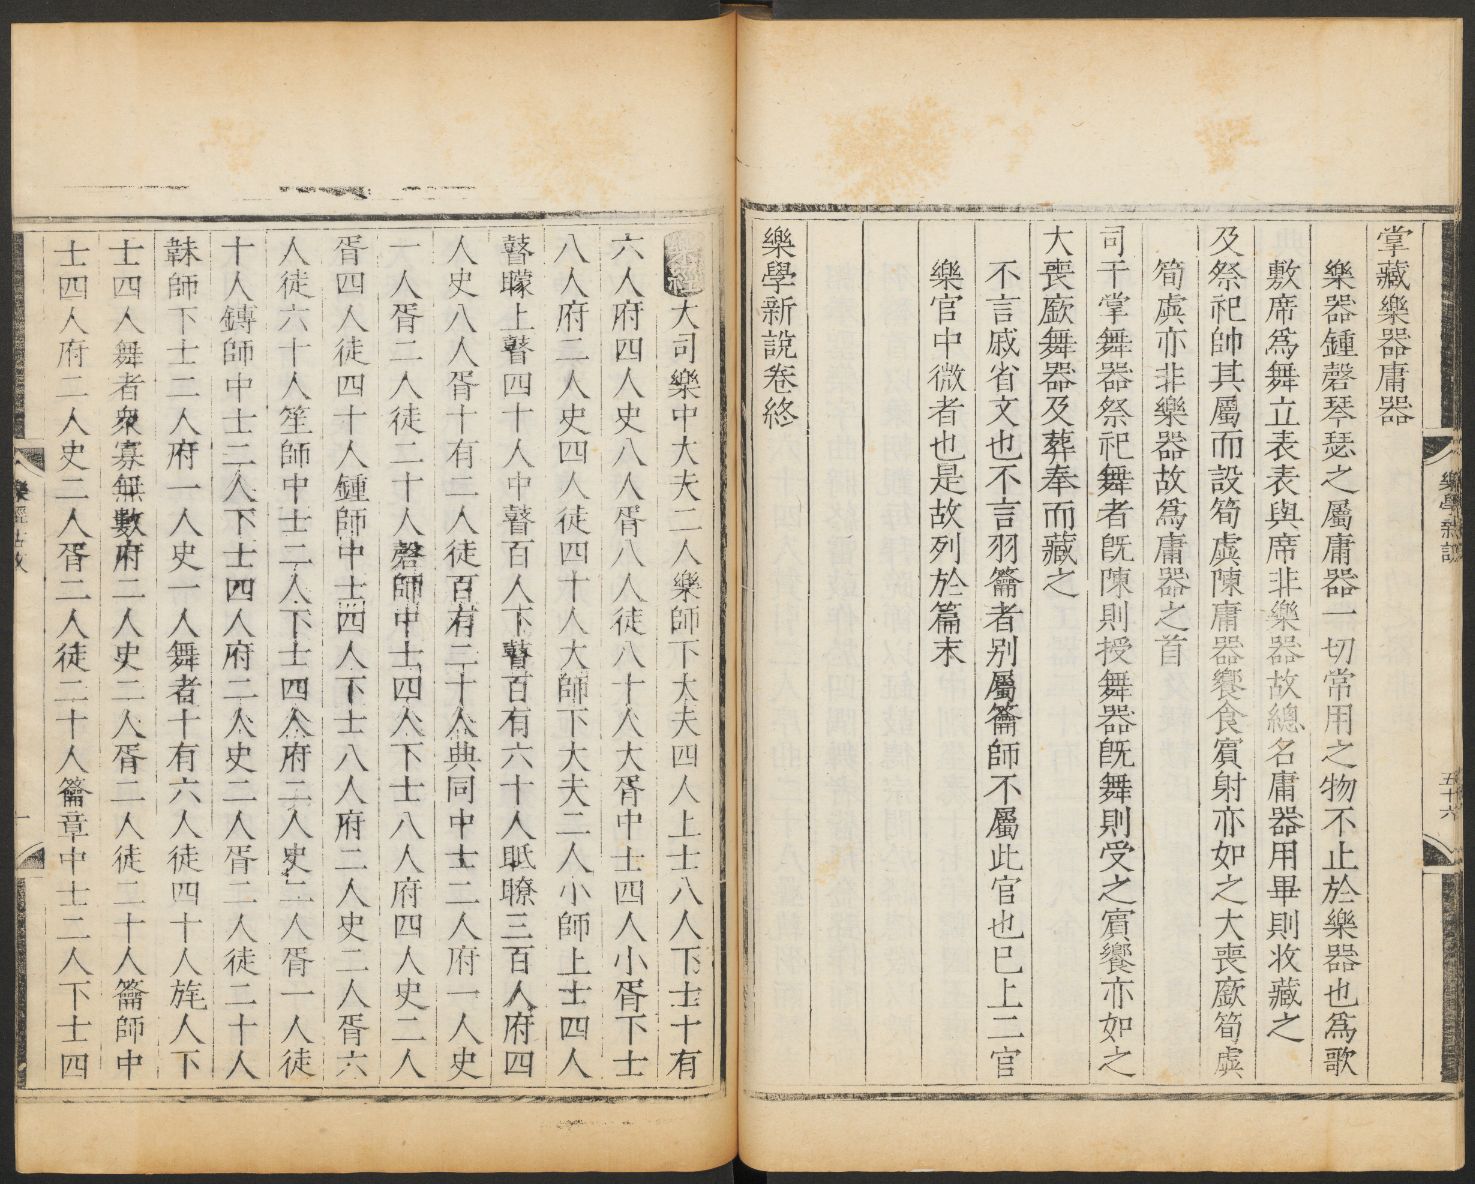 掌藏樂器庸器
樂器鍾磬琴瑟之屬庸器一切常用之物不止於樂器也爲歌
敷席爲舞立表表與席非樂器故總名庸器用畢則收藏之
及祭祀帥其屬而設筍虡陳庸器饗食賓射亦如之大喪廞筍虡
筍虡亦非樂器故爲庸器之首
司干掌舞器祭祀舞者旣陳則授舞器旣舞則受之賓饗亦如之
大喪廞舞器及葬奉而藏之
不言戚省文也不言羽籥者别屬籥師不屬此官也已上二官
樂官中微者也是故列於篇末
樂學新說卷終
樂學新說
五十六
樂經大司樂中大夫二人樂師下大夫四人上士八人下士十有
六人府四人史八人胥八人徒八十人大胥中士四人小胥下士
八人府二人史四人徒四十人大師下大夫二人小師上士四人
瞽矇上瞽四十人中瞽百人下瞽百有六十人眡瞭三百人府四
人史八人胥十有二人徒百有二十人典同中士二人府一人史
一人胥二人徒二十人磬師中士四人下士八人府四人史二人
胥四人徒四十人鍾師中士四人下士八人府二人史二人胥六
人徒六十人笙師中士二人下士四人府二人史二人胥一人徒
十人鏄師中士二人下士四人府二人史二人胥二人徒二十人
韎師下士二人府一人史一人舞者十有六人徒四十人旄人下
士四人舞者衆寡無數府二人史二人胥二人徒二十人籥師中
士四人府二人史二人胥二人徒二十人籥章中士二人下士四
樂經古文
一